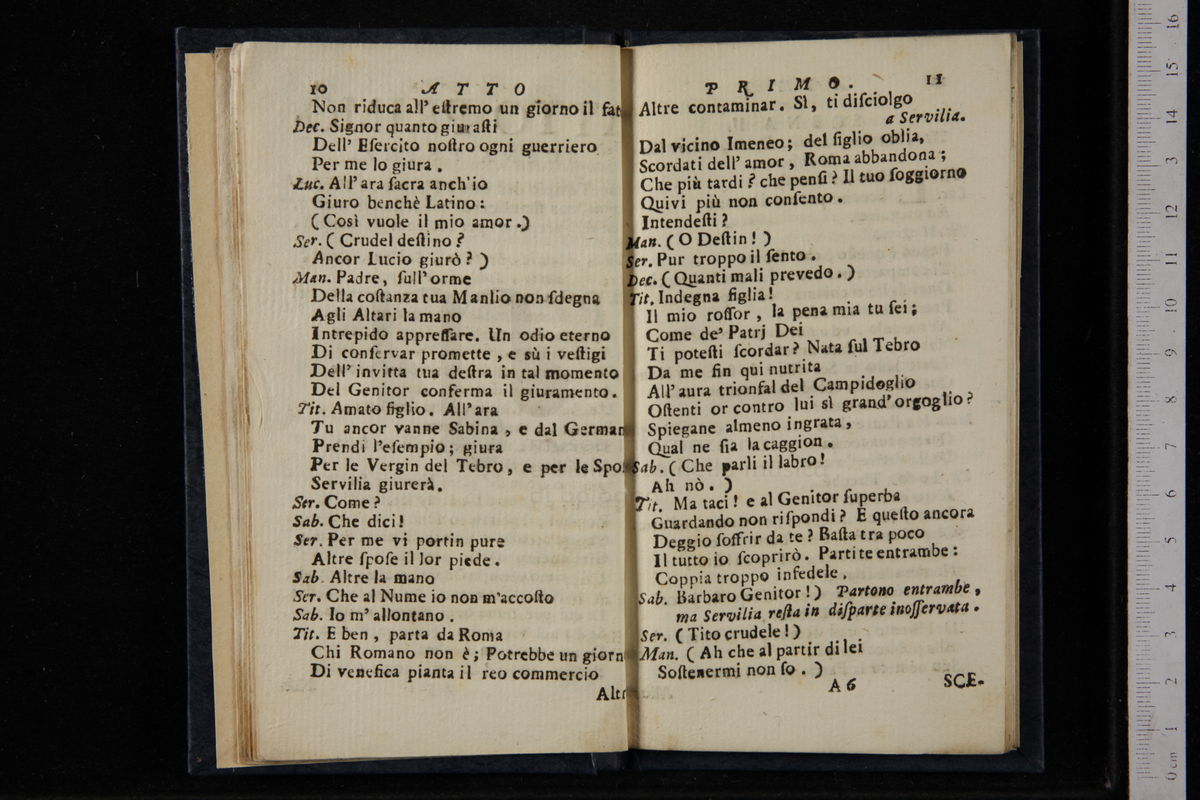 10 ATTO
Non riduca all' eſtremo un giorno il
Dec. Signor quanto giuraſti
Dell' Eſercito noſtro ogni guerriero
Per me lo giura.
Luc. All' ara ſacra anch'io
Giuro benchè Latino:
(Così vuole il mio amor.)
Ser. (Crudel deſtino?
Ancor Lucio giurò?)
Man. Padre, ſull' orme
Della coſtanza tua Manlio non ſdegna
Agli Altari la mano
Intrepido appreſſare. Un odio eterno
Di conſervar promette, e sù i veſtigi
Dell' invitta tua deſtra in tal momento
Del Genitor conferma il giuramento.
Tit. Amato figlio. All' ara
Tu ancor vanne Sabina, e dal German
Prendi l'eſempio; giura
Per le Vergin del Tebro, e per le Spo
Servilia giurerà.
Ser. Come?
Sab. Che dici!
Ser. Per me vi portin pure
Altre ſpoſe il lor piede.
Sab. Altre la mano
Ser. Che al Nume io non m'accoſto
Sab. Io m' allontano.
Tit. E ben, parta da Roma
Chi Romano non è; Potrebbe un giorn
Di venefica pianta il reo commercio
Altr
PRIMO. 11
Altre contaminar. Sì, ti diſciolgo
a Servilia.
Dal vicino Imeneo; del figlio oblia,
Scordati dell' amor, Roma abbandona;
Che più tardi? che penſi? Il tuo ſoggiorno
Quivi più non conſento.
Intendeſti?
Man. (O Deſtin!)
Ser. Pur troppo il ſento.
Dec. (Quanti mali prevedo.)
Tit. Indegna figlia!
Il mio roſſor, la pena mia tu ſei;
Come de' Patrj Dei
Ti poteſti ſcordar? Nata ſul Tebro
Da me fin qui nutrita
All' aura trionfal del Campidoglio
Oſtenti or contro lui sì grand' orgoglio?
Spiegane almeno ingrata,
Qual ne ſia la caggion.
Sab. (Che parli il labro!
Ah nò.)
Tit. Ma taci! e al Genitor ſuperba
Guardando non riſpondi? E queſto ancora
Deggio ſoffrir da te? Baſta tra poco
Il tutto io ſcoprirò. Partite entrambe:
Coppia troppo infedele.
Sab. Barbaro Genitor!) Partono entrambe,
ma Servilia reſta in diſparte inoſſervata.
Ser. (Tito crudele!)
Man. (Ah che al partir di lei
Soſtenermi non ſo.)
A 6 SCE-
0 cm 1 2 3 4 5 6 7 8 9 10 11 12 13 14 15 16